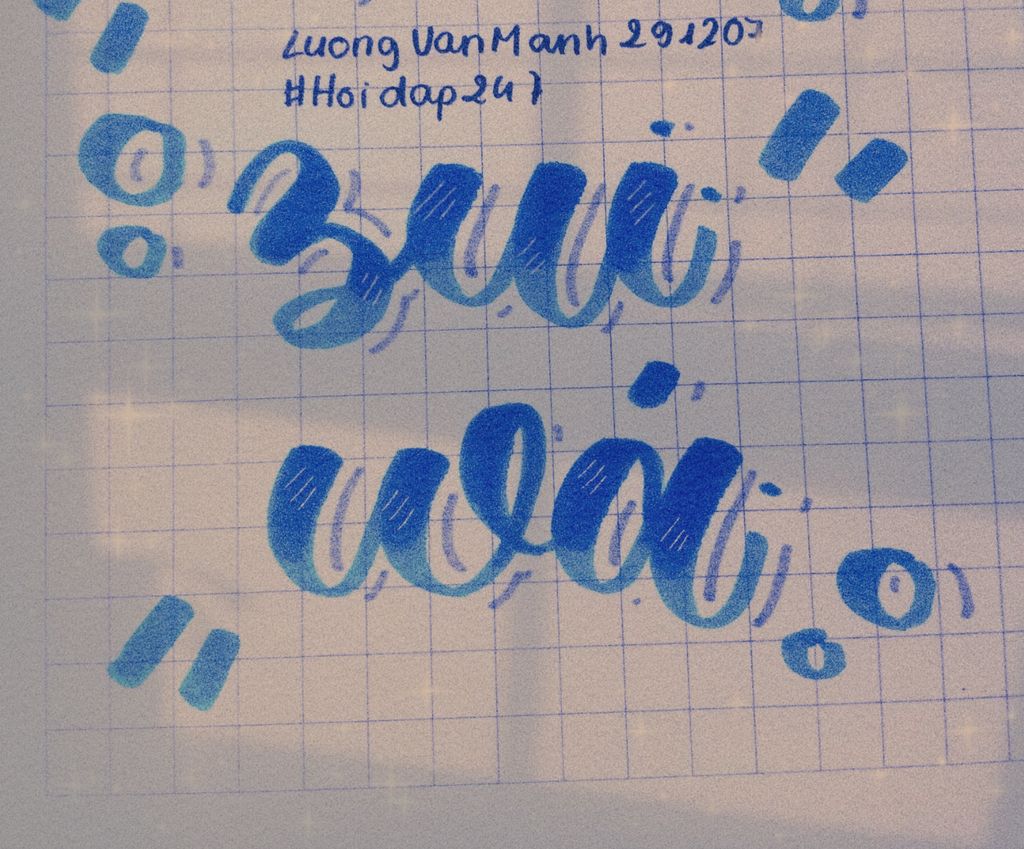 Luong VanManh 291207
#Hoidap247
zui
wá